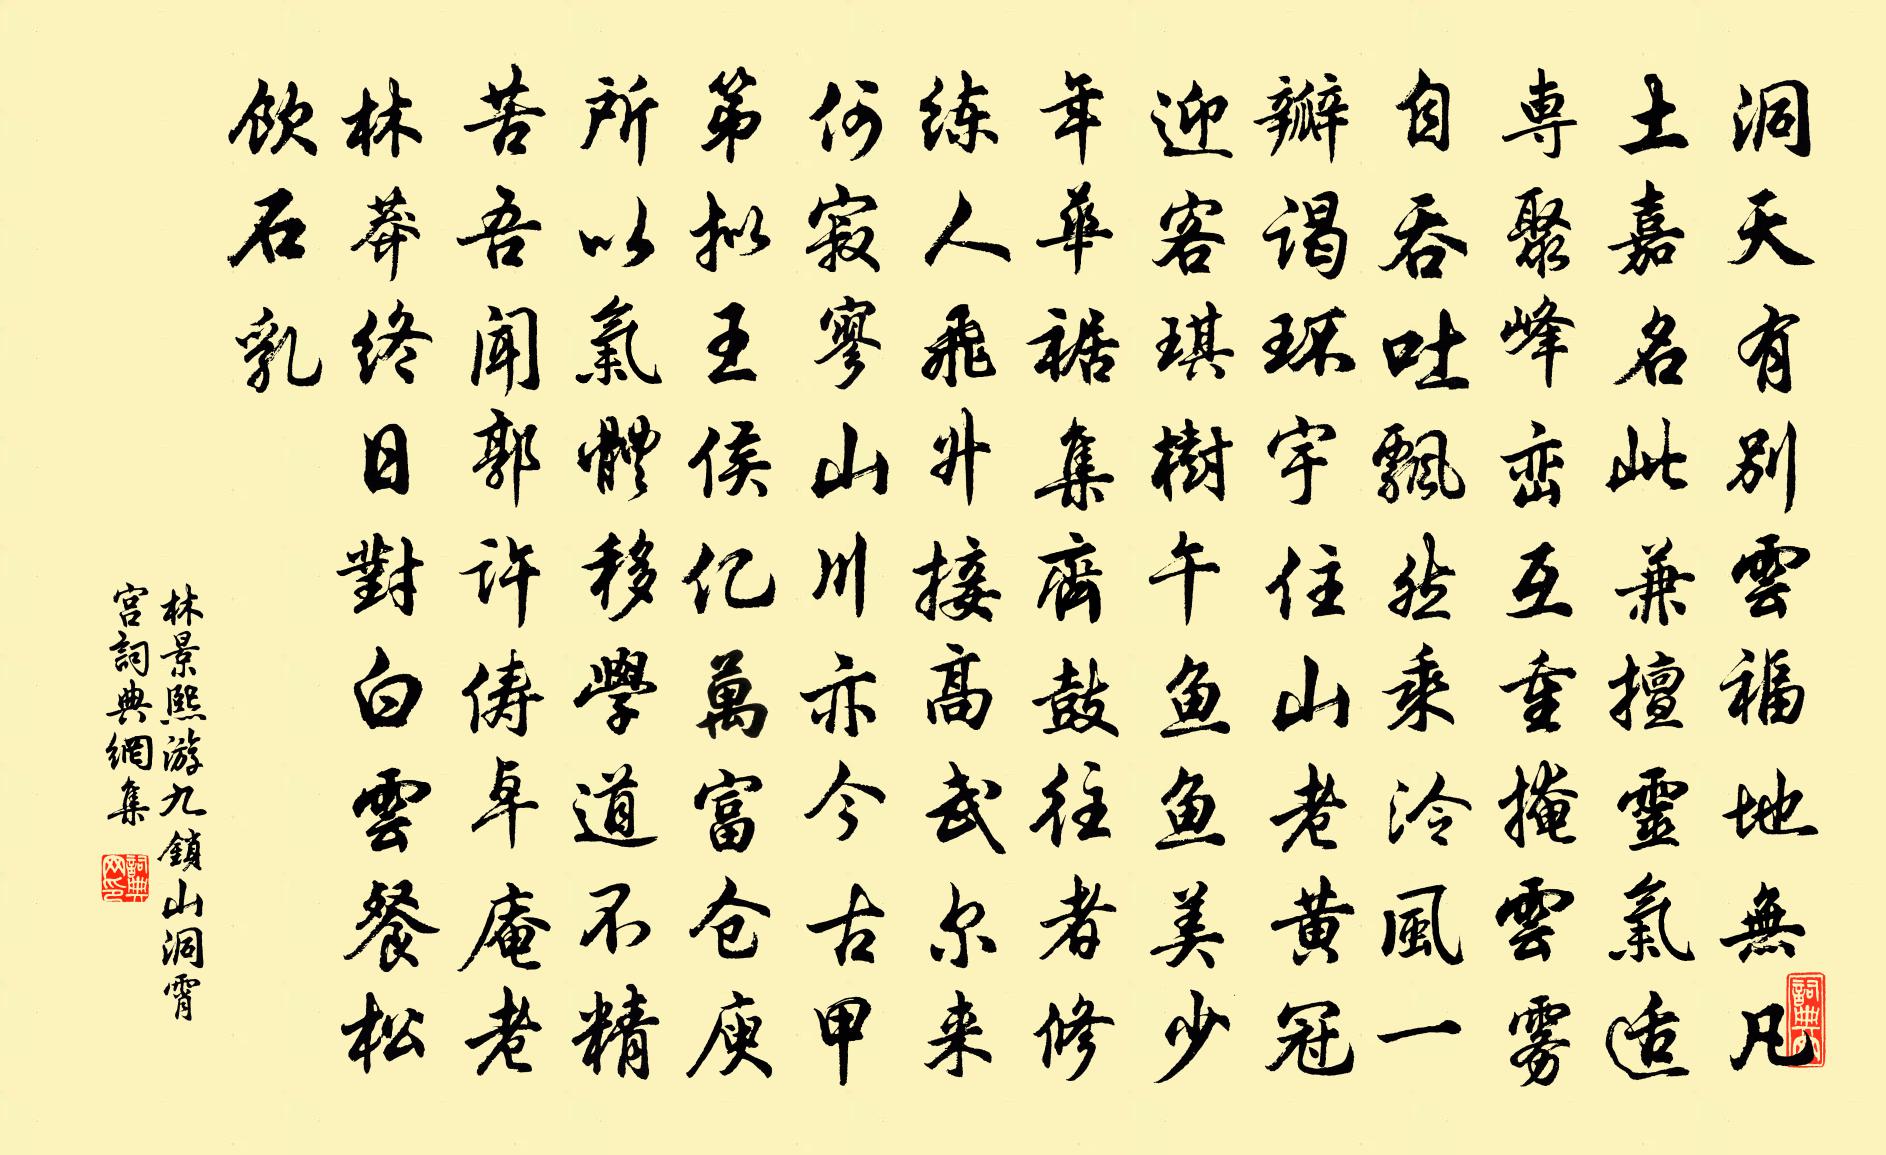 洞天有别雲福地無凡
土嘉名此兼擅靈氣适
専聚峰巒互重掩雲雾
自吞吐飄然乘泠風一
瓣谒环宇住山老黄冠
迎客琪樹午鱼鱼美少
年華裾集齊鼓往者修
练人飛升接高武尔来
何寂寥山川亦今古甲
第拟王侯亿萬富仓庾
所以氣體移學道不精
苦吾聞郭许俦卓庵老
林莽终日對白雲餐松
饮石乳
林景熙游九鎖山洞霄
宫詞典網集
詞典网印